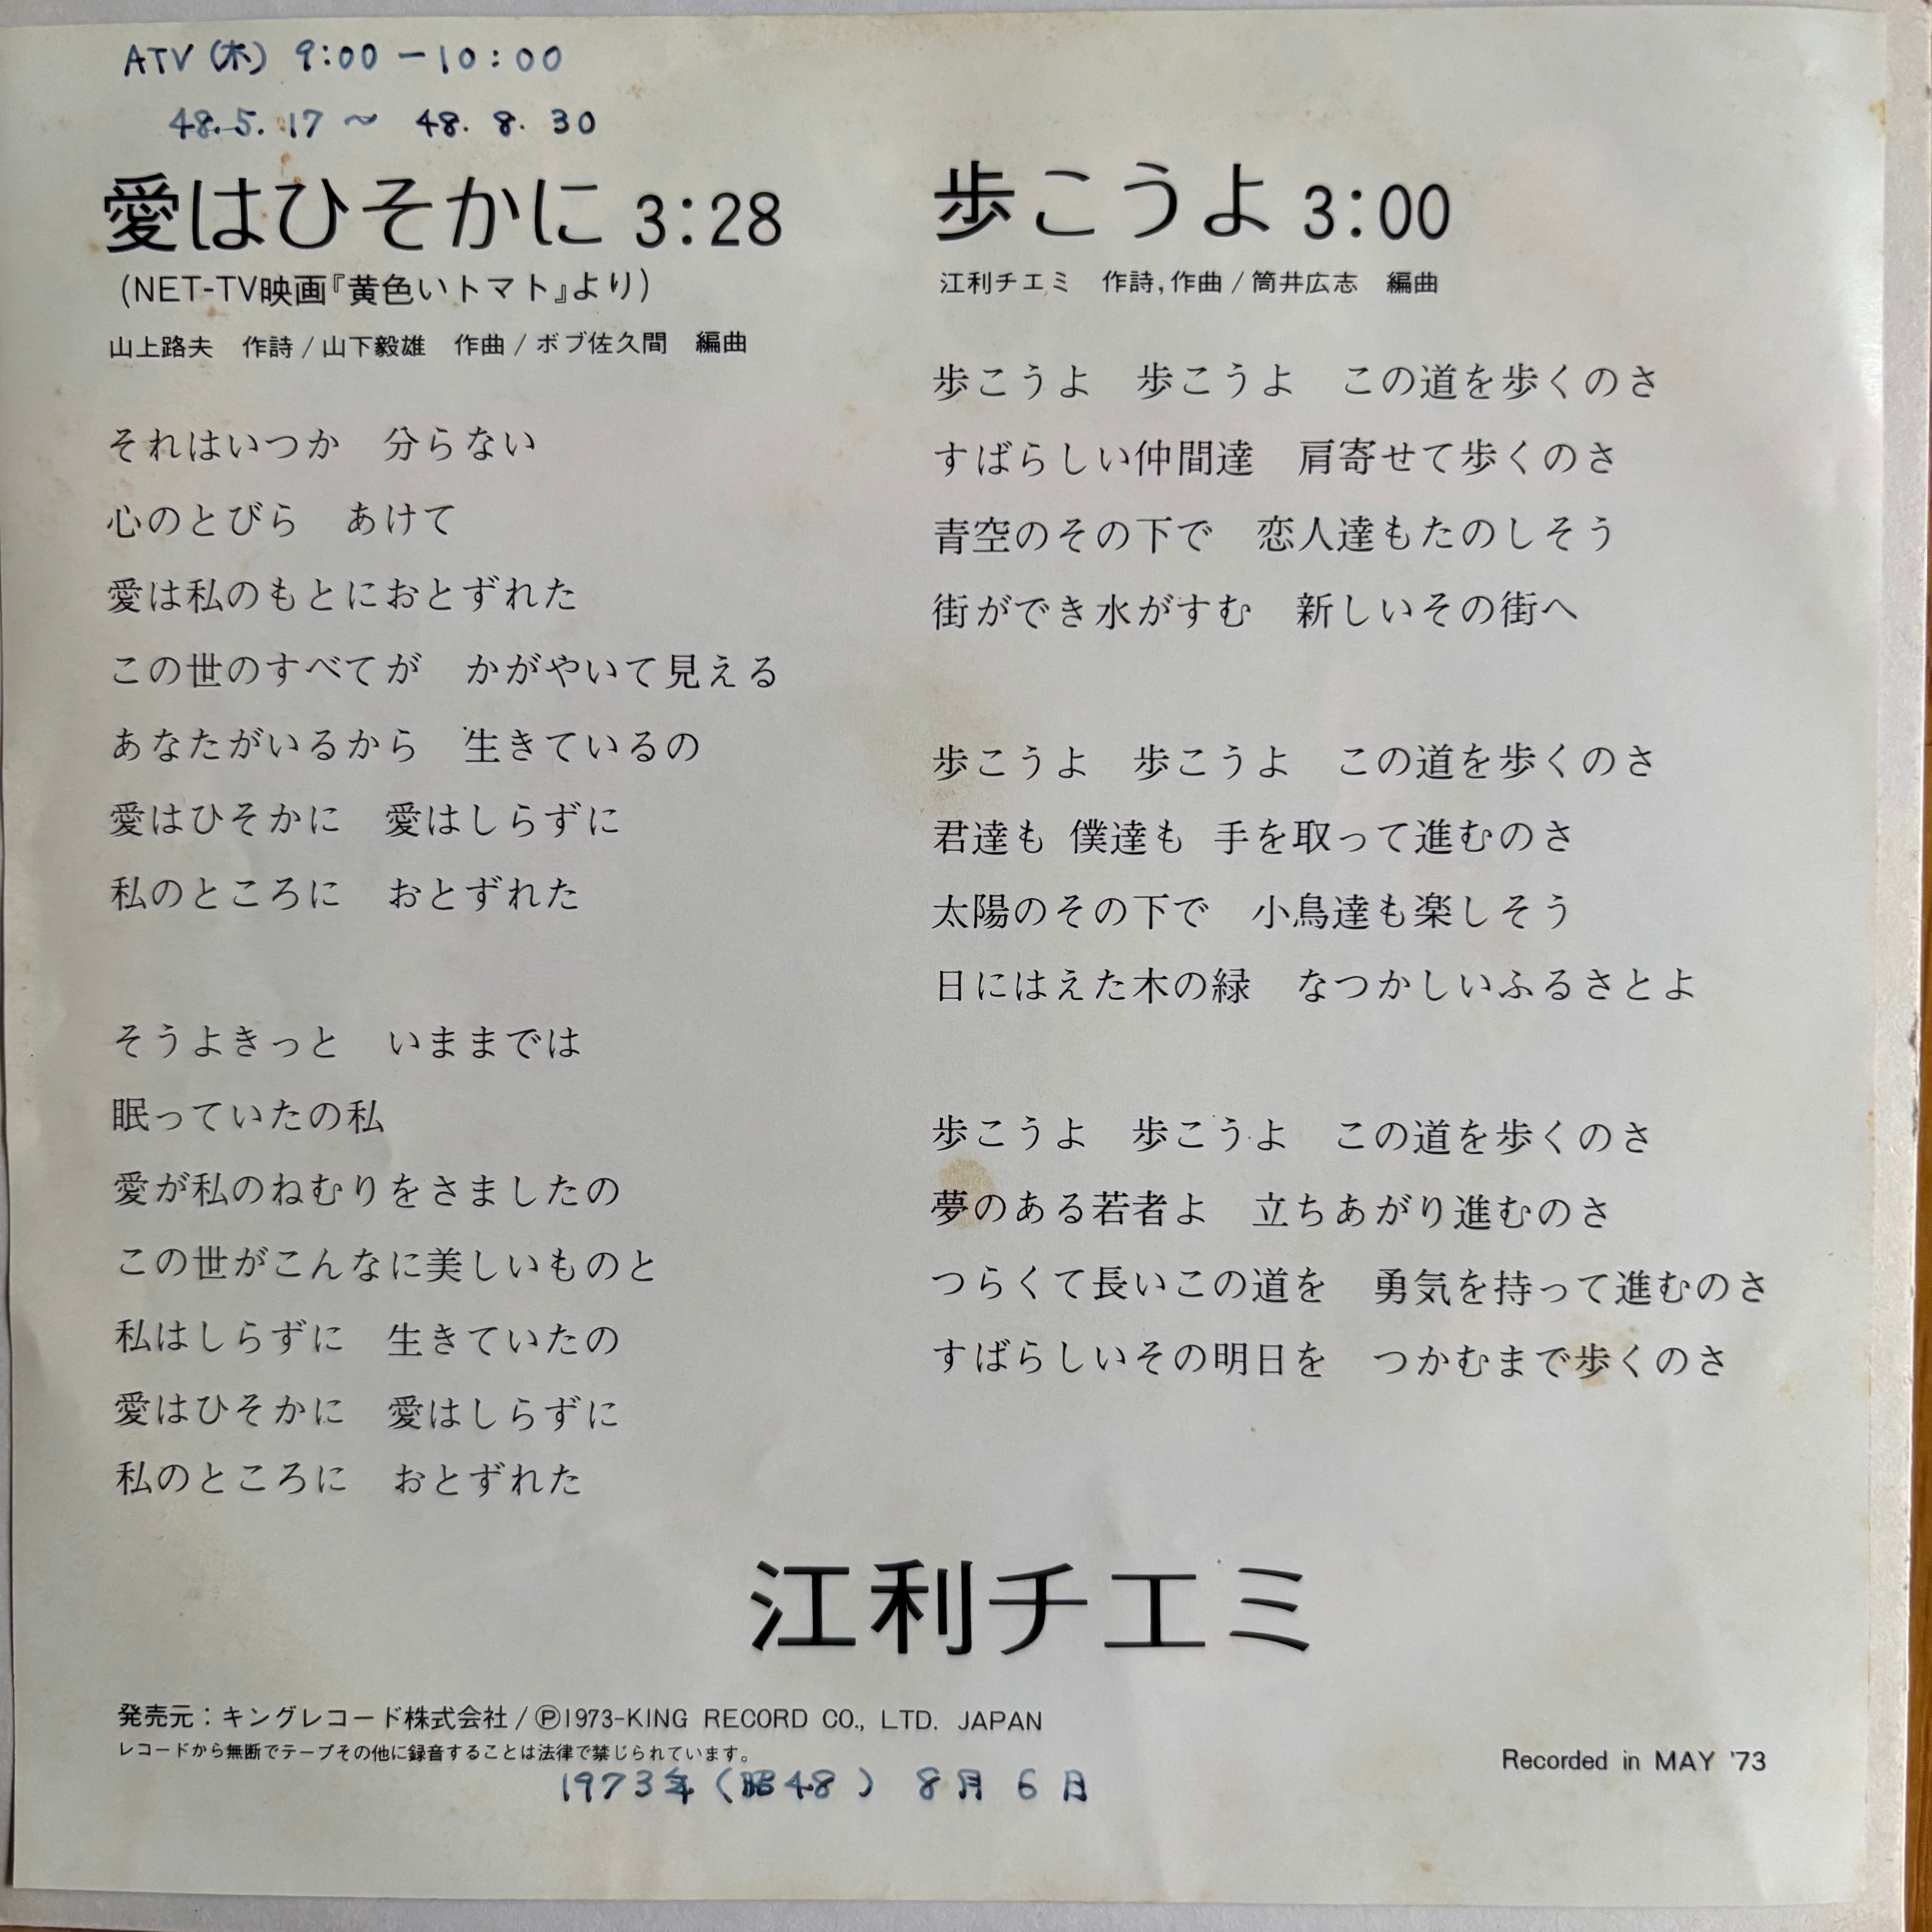 ATV (木) 9:00 — 10:00
48.5.17 ～ 48.8.30
愛はひそかに 3:28
(NET-TV映画『黄色いトマト』より)
山上路夫　作詩 / 山下毅雄　作曲 / ボブ佐久間　編曲
それはいつか　分らない
心のとびら　あけて
愛は私のもとにおとずれた
この世のすべてが　かがやいて見える
あなたがいるから　生きているの
愛はひそかに　愛はしらずに
私のところに　おとずれた
そうよきっと　いままでは
眠っていたの私
愛が私のねむりをさましたの
この世がこんなに美しいものと
私はしらずに　生きていたの
愛はひそかに　愛はしらずに
私のところに　おとずれた
歩こうよ 3:00
江利チエミ　作詩,作曲 / 筒井広志　編曲
歩こうよ　歩こうよ　この道を歩くのさ
すばらしい仲間達　肩寄せて歩くのさ
青空のその下で　恋人達もたのしそう
街ができ水がすむ　新しいその街へ
歩こうよ　歩こうよ　この道を歩くのさ
君達も 僕達も 手を取って進むのさ
太陽のその下で　小鳥達も楽しそう
日にはえた木の緑　なつかしいふるさとよ
歩こうよ　歩こうよ　この道を歩くのさ
夢のある若者よ　立ちあがり進むのさ
つらくて長いこの道を　勇気を持って進むのさ
すばらしいその明日を　つかむまで歩くのさ
江利チエミ
発売元：キングレコード株式会社 / Ⓟ1973-KING RECORD CO., LTD. JAPAN
レコードから無断でテープその他に録音することは法律で禁じられています。
Recorded in MAY '73
1973年(昭48) 8月6日